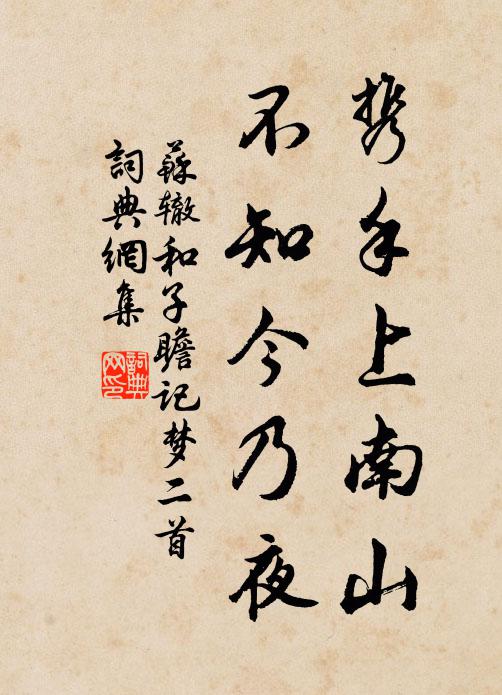 携手上南山
不知今乃夜
蘇辙和子瞻记梦二首
詞典網集
詞典
网印